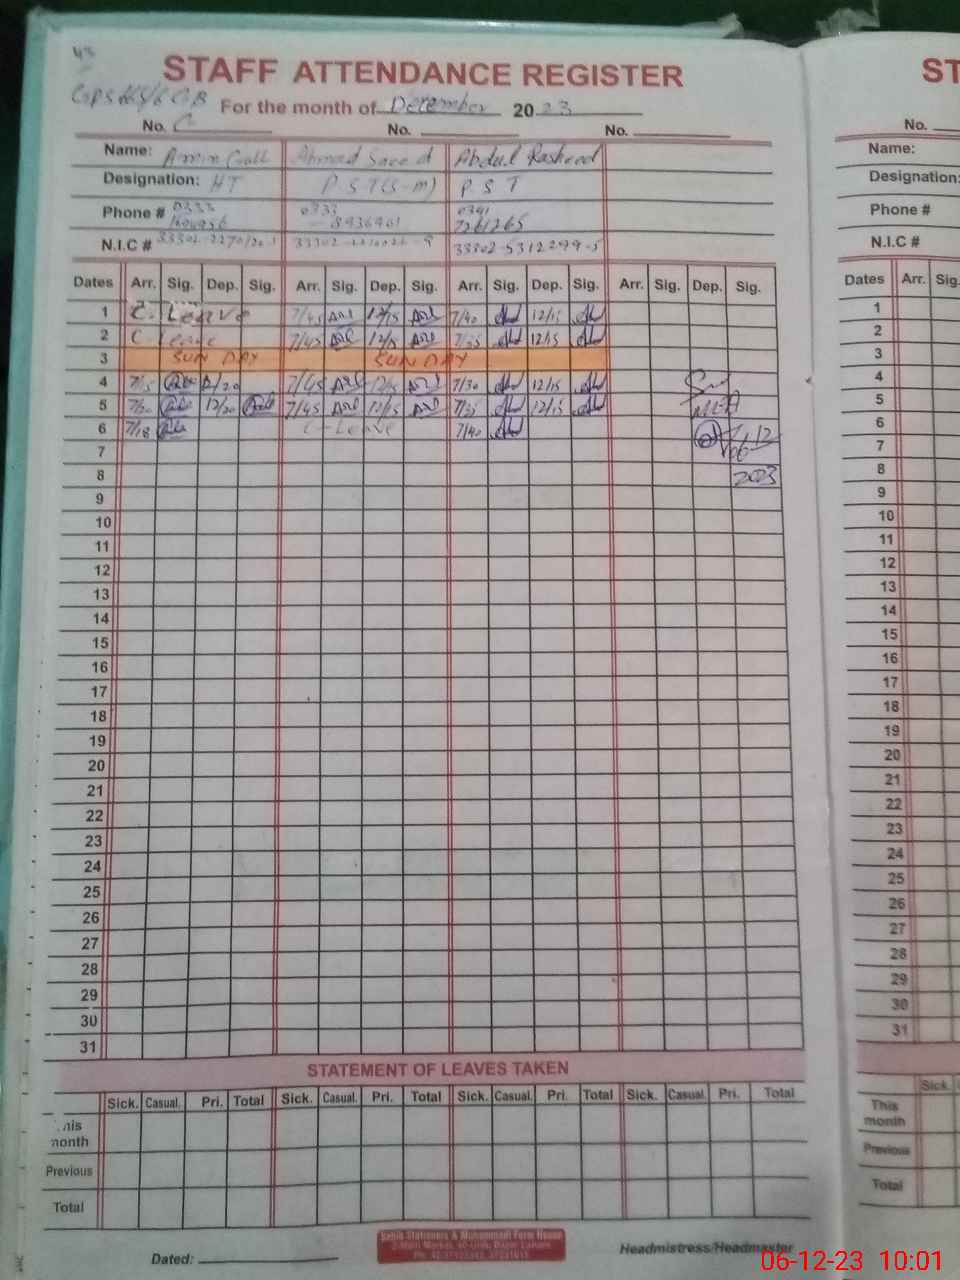 STAFF ATTENDANCE REGISTER
For the month of December 2023
No. No. No.
Name: Ahmad Saeed Abdul Rasheed
Designation: HT P S T (S-m) P S T
Phone # 0333 0333 0341
8936961 7261265
N.I.C # 33302-5312299-5
Dates Arr. Sig. Dep. Sig. Arr. Sig. Dep. Sig. Arr. Sig. Dep. Sig. Arr. Sig. Dep. Sig.
1 C. Leave 7/45 12/15 7/40 12/15
2 C Leave 7/45 12/15 7/35 12/15
3 SUN DAY SUN DAY
4 7/15 12/20 7/45 12/15 7/30 12/15
5 7/20 12/20 7/45 12/15 7/35 12/15 MEA
6 7/18 C-Leave 7/40 06-12
7
8 2023
9
10
11
12
13
14
15
16
17
18
19
20
21
22
23
24
25
26
27
28
29
30
31
STATEMENT OF LEAVES TAKEN
Sick. Casual. Pri. Total Sick. Casual. Pri. Total Sick. Casual. Pri. Total Sick. Casual. Pri. Total
month
Previous
Total
Dated:
Headmistress/Headmaster
ST
No.
Name:
Designation:
Phone #
N.I.C #
Dates Arr. Sig.
1
2
3
4
5
6
7
8
9
10
11
12
13
14
15
16
17
18
19
20
21
22
23
24
25
26
27
28
29
30
31
Sick.
This
month
Previous
Total
06-12-23 10:01